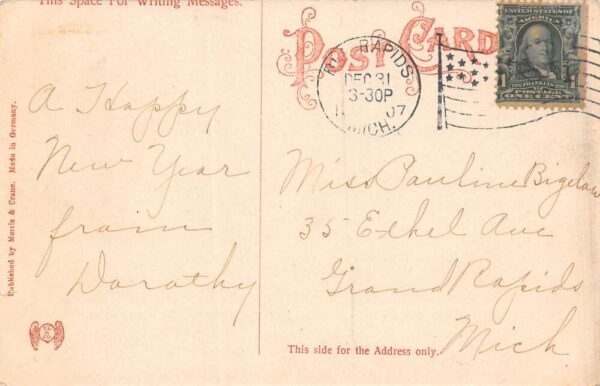 This Space For Writing Messages.
POST CARD
UNITED STATES OF
AMERICA
FRANKLIN
ONE CENT
RAPIDS
DEC 31
3-30P
07
MICH.
A Happy
New Year
from
Dorothy
Miss Pauline Bigelow
35 Ethel Ave
Grand Rapids
Mich
Published by Morris & Crane. Made in Germany.
This side for the Address only.